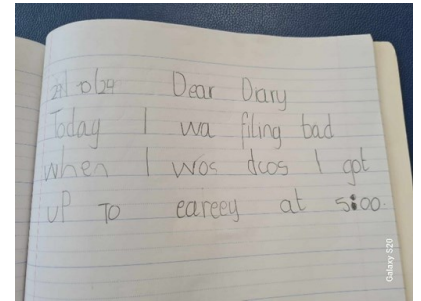 Dear Dary
Today I wa filing bad
when I wos dcos I got
UP TO eareey at 5:00.
Galaxy S20